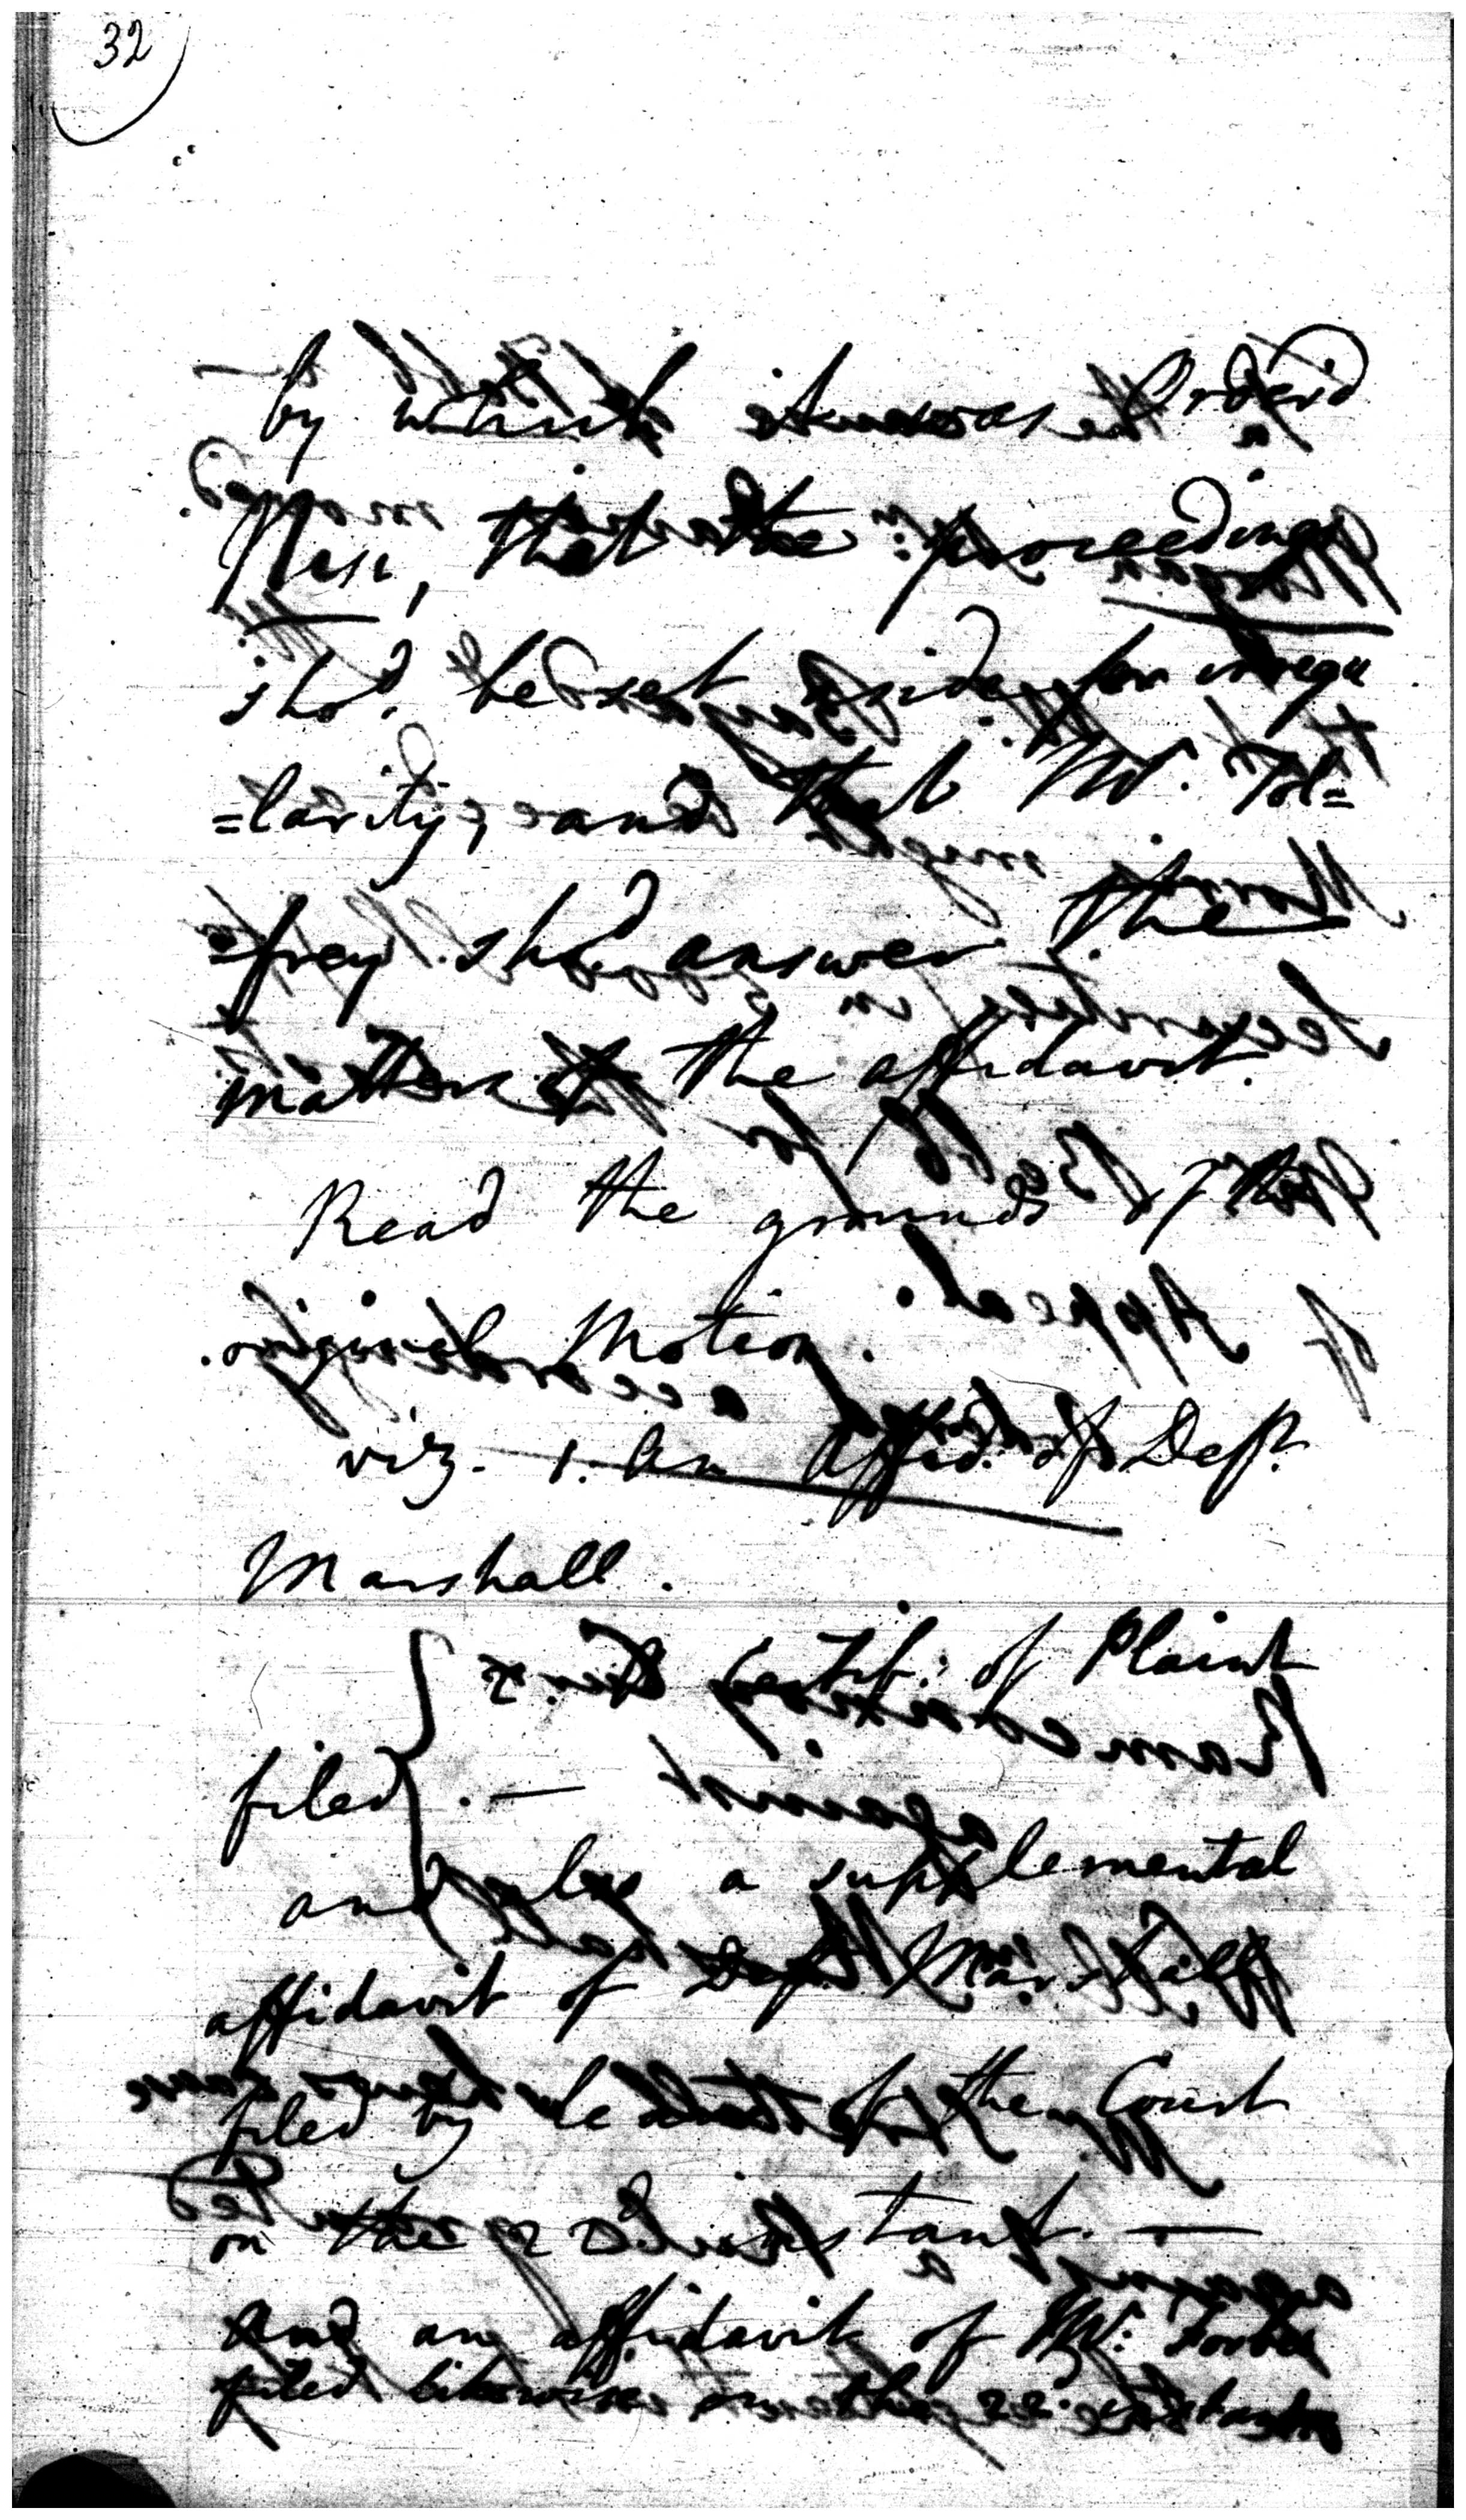 32
by which it was Order'd
Nisi, that the proceedings
sho.d be set aside for irregu
=larity, and that Mr. Tol=
=frey sho.d answer the
matters of the affidavit.
Read the grounds of the
original Motion.
viz. 1. An Affid: of Dep.
Marshall.
2. Certif: of Plaint
filed. —
and also a supplemental
affidavit of Dep. Marshall
filed by leave of the Court
on the 22.d instant. —
And an affidavit of Mr: Forbes
filed likewise on the 22.d instant